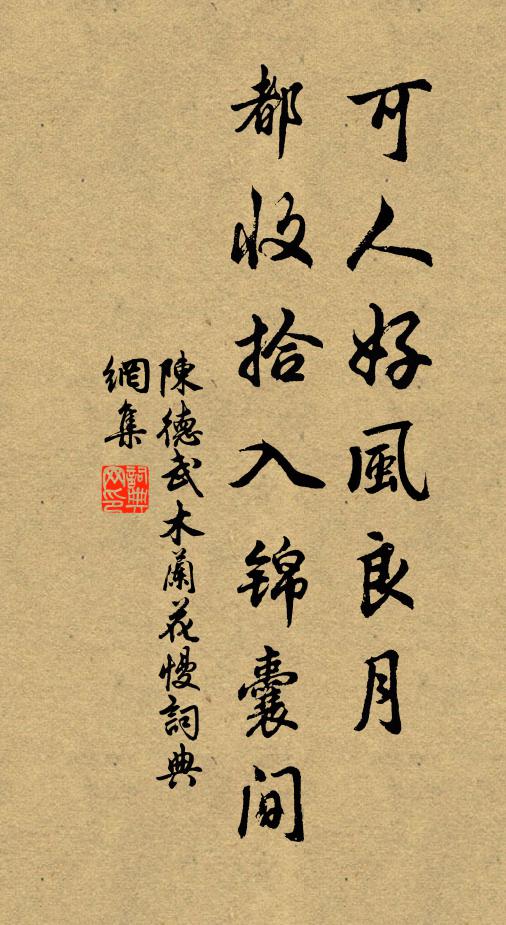 可人好風良月
都收拾入锦囊间
陳德武木蘭花慢詞典
網集
詞典
网印